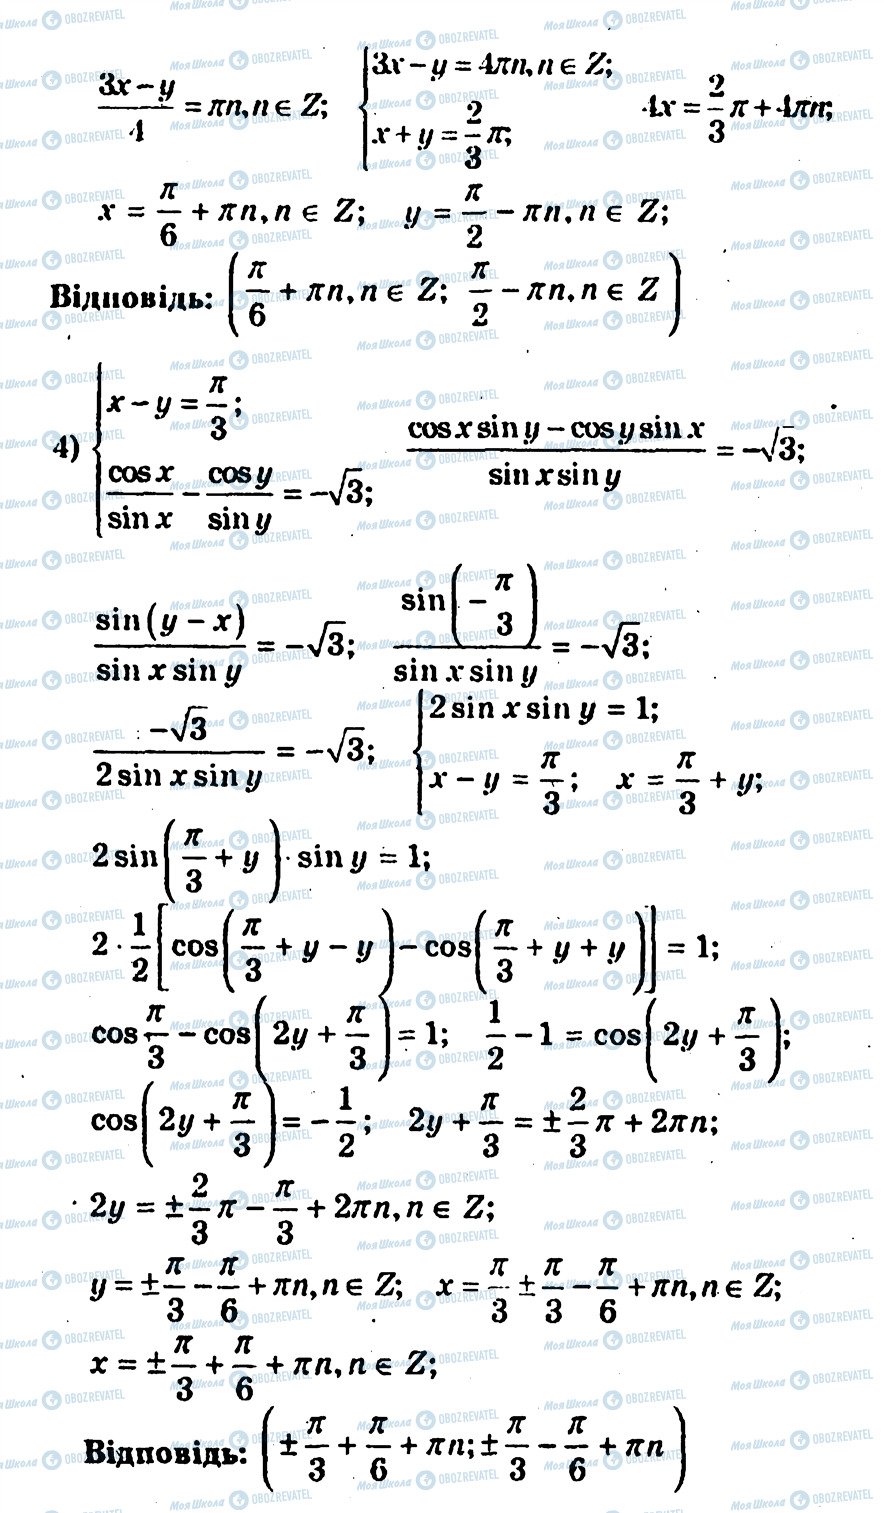 (3x − y)/4 = πn, n ∈ Z; { 3x − y = 4πn, n ∈ Z; x + y = 2/3 π; 4x = 2/3 π + 4πn;
x = π/6 + πn, n ∈ Z; y = π/2 − πn, n ∈ Z;
Відповідь: (π/6 + πn, n ∈ Z; π/2 − πn, n ∈ Z)
4) { x − y = π/3; cos x/sin x − cos y/sin y = −√3; (cos x sin y − cos y sin x)/(sin x sin y) = −√3;
sin(y − x)/(sin x sin y) = −√3; sin(−π/3)/(sin x sin y) = −√3;
−√3/(2 sin x sin y) = −√3; { 2 sin x sin y = 1; x − y = π/3; x = π/3 + y;
2 sin(π/3 + y) · sin y = 1;
2 · 1/2 [cos(π/3 + y − y) − cos(π/3 + y + y)] = 1;
cos π/3 − cos(2y + π/3) = 1; 1/2 − 1 = cos(2y + π/3);
cos(2y + π/3) = −1/2; 2y + π/3 = ±2/3 π + 2πn;
2y = ±2/3 π − π/3 + 2πn, n ∈ Z;
y = ±π/3 − π/6 + πn, n ∈ Z; x = π/3 ± π/3 − π/6 + πn, n ∈ Z;
x = ±π/3 + π/6 + πn, n ∈ Z;
Відповідь: (±π/3 + π/6 + πn; ±π/3 − π/6 + πn)